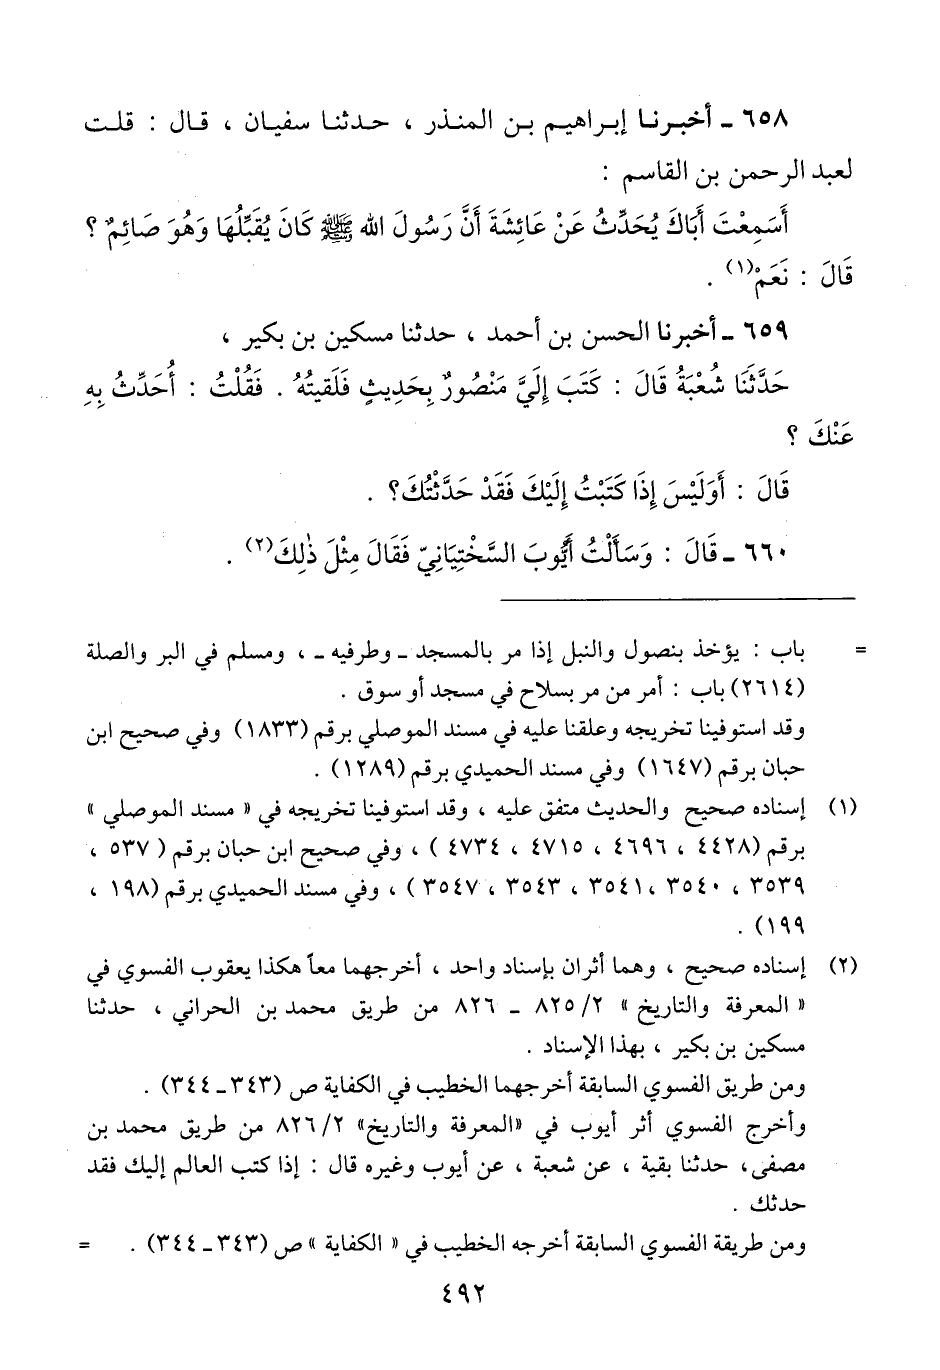 ٦٥٨ ـ أخبرنا إبراهيم بن المنذر ، حدثنا سفيان ، قال : قلت
لعبد الرحمن بن القاسم :
أَسَمِعْتَ أَبَاكَ يُحَدِّثُ عَنْ عَائِشَةَ أَنَّ رَسُولَ الله ﷺ كَانَ يُقَبِّلُهَا وَهُوَ صَائِمٌ ؟
قَالَ : نَعَمْ(١) .
٦٥٩ ـ أخبرنا الحسن بن أحمد ، حدثنا مسكين بن بكير ،
حَدَّثَنَا شُعْبَةُ قَالَ : كَتَبَ إِلَيَّ مَنْصُورٌ بِحَدِيثٍ فَلَقِيتُهُ . فَقُلْتُ : أُحَدِّثُ بِهِ
عَنْكَ ؟
قَالَ : أَوَلَيْسَ إِذَا كَتَبْتُ إِلَيْكَ فَقَدْ حَدَّثْتُكَ؟ .
٦٦٠ ـ قَالَ : وَسَأَلْتُ أَيُّوبَ السَّخْتِيَانِيّ فَقَالَ مِثْلَ ذٰلِكَ(٢) .
= باب : يؤخذ بنصول والنبل إذا مر بالمسجد ـ وطرفيه ـ ، ومسلم في البر والصلة
(٢٦١٤) باب : أمر من مر بسلاح في مسجد أو سوق .
وقد استوفينا تخريجه وعلقنا عليه في مسند الموصلي برقم (١٨٣٣) وفي صحيح ابن
حبان برقم (١٦٤٧) وفي مسند الحميدي برقم (١٢٨٩) .
(١) إسناده صحيح والحديث متفق عليه ، وقد استوفينا تخريجه في « مسند الموصلي »
برقم (٤٤٢٨ ، ٤٦٩٦ ، ٤٧١٥ ، ٤٧٣٤ ) ، وفي صحيح ابن حبان برقم ( ٥٣٧ ،
٣٥٣٩ ، ٣٥٤٠ ،٣٥٤١ ، ٣٥٤٣ ، ٣٥٤٧ ) ، وفي مسند الحميدي برقم (١٩٨ ،
١٩٩) .
(٢) إسناده صحيح ، وهما أثران بإسناد واحد ، أخرجهما معاً هكذا يعقوب الفسوي في
« المعرفة والتاريخ » ٢/ ٨٢٥ ـ ٨٢٦ من طريق محمد بن الحراني ، حدثنا
مسكين بن بكير ، بهذا الإسناد .
ومن طريق الفسوي السابقة أخرجهما الخطيب في الكفاية ص (٣٤٣ـ ٣٤٤) .
وأخرج الفسوي أثر أيوب في «المعرفة والتاريخ» ٢/ ٨٢٦ من طريق محمد بن
مصفى، حدثنا بقية ، عن شعبة ، عن أيوب وغيره قال : إذا كتب العالم إليك فقد
حدثك .
ومن طريقة الفسوي السابقة أخرجه الخطيب في « الكفاية » ص (٣٤٣ـ ٣٤٤) . =
٤٩٢